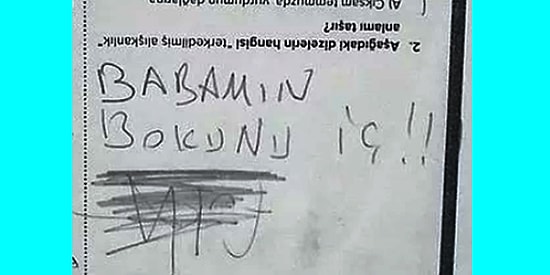 2. Aşağıdaki dizelerin hangisi "terkedilmiş alışkanlık"
anlamı taşır?
A) Çıksam temmuzda, yurdumun
BABAMIN
BOKUNU İÇ!!